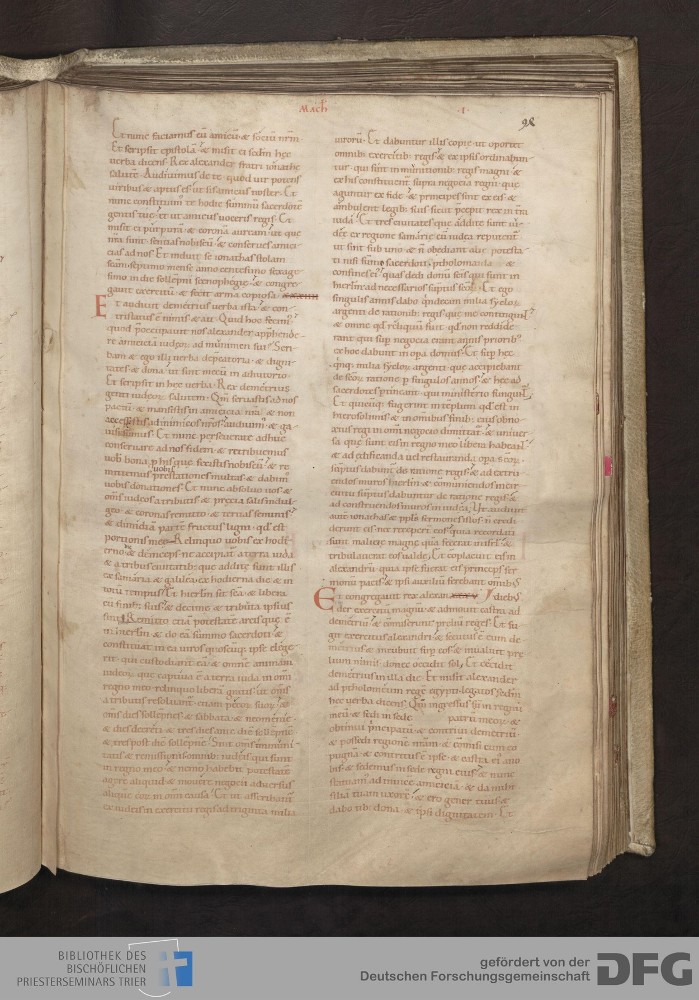 Mach
.I.
98
Et nunc faciamus eū amicū & sociū nrm̄.
Et scripsit epistolā & misit ei scdm̄ hęc
verba dicens. Rex alexander fratri ionathę
salutē. Audiuimus de te quod uir potens
uiribus & aptus es ut sis amicus noster. Et
nunc constituim' te hodie sūmū sacerdotē
gentis tuę & ut amicus uoceris regis. Et
misit ei purpurā & coronā aureā ut quę
cias ad nos. Et induit se ionathas stola
simo in die sollēpni scenophegię & congre
gauit exercitū & fecit arma copiosa
Et audiuit demetrius verba ista & con
tristatus ē nimis & ait. Quid hoc fecim'
quod pręoccupauit nos alexander apprhende
re amiciciā iudęor̄ ad munimen sui. Scri
bam & ego illis uerba deprecatoria & digni
tates & dona ut sint mecū in adiutoriū
Et scripsit in hęc uerba. Rex demetrius
genti iudęor̄ salutem. Qm̄ seruastis ad nos
pactū & mansistis in amicicia nrā & non
accessistis ad inimicos nrōs audiuim' & ga
uisi sumus. Et nunc perseuerate adhuc
conseruare ad nos fidem & retribuemus
vobis
uobis donationes. Et nunc absoluo uos &
oms̄ iudęos a tributis & precia salis indul
geo & coronas remitto & tertias seminis
& dimidiā partē fructus ligni qd̄ est
portionis meę Relinquo uobis ex hodi
erno die & deinceps ne accipiat̄ a terra iuda
& a tribus ciuitatib: quę additę sunt illi
ex samaria & galilea ex hodierna die & in
totū tempus. Et hierlm̄ sit scā & libera
cū finib: suis & decimę & tributa ipsius
sint. Remitto etiā potestatē arcis quę ē
in hierlm̄ & do eā sūmo sacerdoti &
constituat in ea uiros quoscūq: ipse elege
rit qui custodiant eā & omnē animam
iudęor̄ quę captiua ē a terra iuda in om̄i
regno meo relinquo liberā gratis ut om̄s
a tributis resoluant̄ etiam pecor̄ suor̄ &
oms̄ dies sollēpnes & sabbata & neomenię
& dies decreti & tres dies ante diē sollēpnē
& tres post diē sollēpnē sint om̄s immuni
tatis & remissionis omnib: iudęis qui sunt
in regno meo & nemo habebit potestatē
agere aliquid & mouere negocii aduersus
aliquē eor̄ in om̄i causa. Et ut ascribant̄
ex iudęis in exercitu regis ad triginta milia
uirorū. Et dabuntur illis copię ut oportet
omnib: exercitib: regis & ex ipsis ordinabun
tur qui sint in munitionib: regis magni &
ex his constituent̄ supra negocia regni quę
aguntur ex fide & principes sint ex eis &
ambulent legib: suis sicut pręcepit rex in trā
iuda. Et tres ciuitates quę additę sunt iu
dęę ex regione samarię cū iudea reputent̄
ut sint sub uno & n̄ obediant alii potesta
ti nisi sūmo sacerdoti. ptholomaida &
confines ei quas dedi donū scīs qui sunt in
hierlm̄ ad necessarios sūptus scōr̄. Et ego
singulis annis dabo quindecim milia syclor̄
argenti de rationib: regis quę me contingunt
& omne qd̄ reliquū fuit qd̄ non reddide
rant qui sup negocia erant annis priorib:
ex hoc dabunt in opa domus. Et sup hęc
quinq: milia syclor̄ argenti quę accipiebant
de scōr̄ ratione p singulos annos & hęc ad
sacerdotes ptineant qui ministerio fungunt̄
Et quicūq: fugerint in templū qd̄ est in
hierosolimis & in omnibus finib: eius obno
xius regi in om̄i negocio dimittat̄ & uniuer
sa quę sunt ei in regno meo libera habeat
& ad ędificanda uel restauranda opa scōr̄
sūptus dabunt̄ de ratione regis & ad extru
endos muros hierlm̄ & cōmuniendos in cir
cuitu sūptus dabuntur de ratione regis &
ad construendos muros in iudea. Ut audiuit
aut̄ ionathas & ppls̄ sermones istos n̄ credi
derunt eis nec receperunt eos quia recordati
sunt malicię magnę quā fecerat in isrl̄ &
tribulauerat eos ualde. Et cōplacuit eis in
alexandrū quia ipse fuerat eis princeps ser
monū pacis & ipsi auxiliū ferebant omnib:
Et congregauit rex alexan dieb:
der exercitū magnū & admouit castra ad
demetriū & cōmiserunt preliū reges. Et fu
git exercitus alexandri & secutus ē eum de
metrius & incubuit sup eos & inualuit pre
lium nimis donec occidit sol. Et cecidit
demetrius in illa die. Et misit alexander
ad ptholomeum regē egypti legatos scdm̄
hęc verba dicens. Qm̄ ingressus sū in regnū
meū & sedi in sede patrū meor̄ &
obtinui principatū & contriui demetriū
& possedi regionē nrām & cōmisi cum eo
pugnā & contritus ē ipse & castra ei' a no
bis & sedemus in sede regni eius & nunc
statuam' ad inuicē amiciciā & da mihi
filiā tuam uxorē & ero gener tuus &
dabo tibi dona & ipsi dignitatem. Et
BIBLIOTHEK DES
BISCHÖFLICHEN
PRIESTERSEMINARS TRIER
gefördert von der
Deutschen Forschungsgemeinschaft
DFG